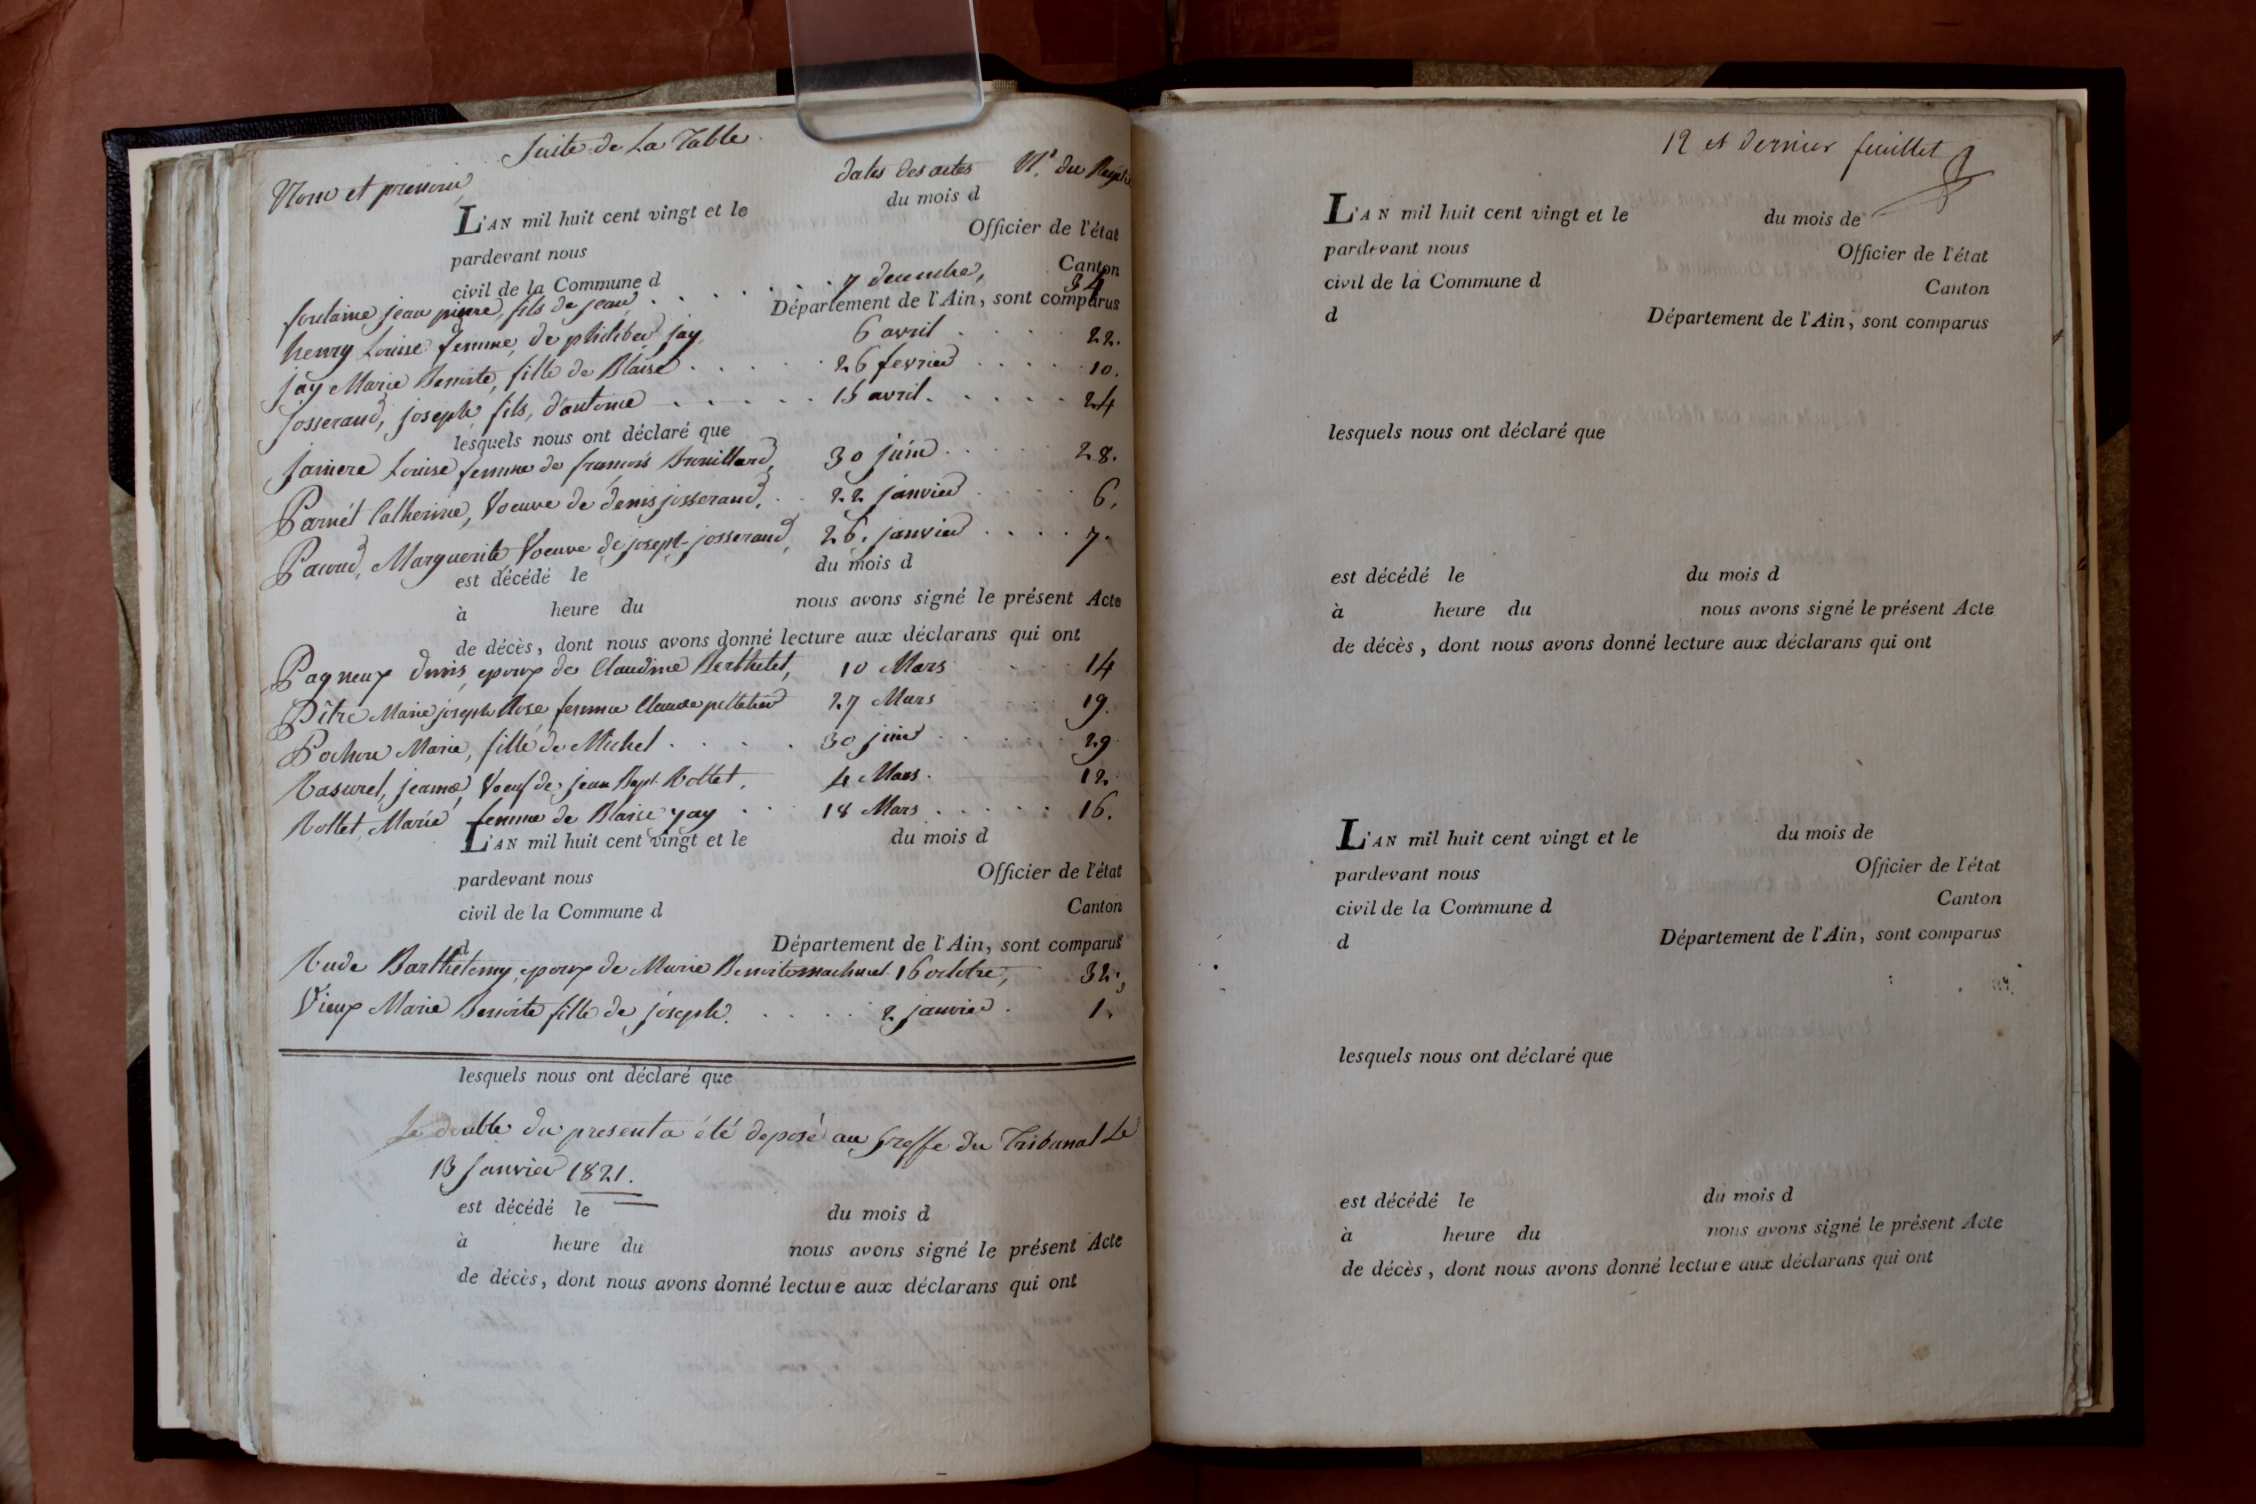 Suite de La Table
Nom et prenom dates des actes N.° du Regist
L'AN mil huit cent vingt et le du mois d
pardevant nous Officier de l'état
civil de la Commune d Canton
Département de l'Ain, sont comparus
foulaine jean pierre, fils de jean . . . . . . 7 decembre, 34
henry Louise femme de philibert jay 6 avril . . . . 22.
jay Marie Benoite, fille de Blaise . . . . . 26 fevrier . . . . 10.
josserand, joseph fils, d'antoine . . . . . 15 avril . . . . . 24
lesquels nous ont déclaré que
janiere Louise femme de françois Brouillard, 30 juin . . . . . 28.
Parnét Catherine, Voeuve de denis josserand, . . 22 janvier . . . . 6.
Pacoud, Marguerite Voeuve de joseph josserand, 26. janvier . . . . 7.
est décédé le du mois d
à heure du nous avons signé le présent Acte
de décès, dont nous avons donné lecture aux déclarans qui ont
Pagneux denis, epoux de Claudine Berthelet, 10 Mars . . . 14
Pître Marie joseph Rose femme Claude pelletier 27 Mars . . . 19.
Pochon Marie, fille de Michel . . . . . 30 juin . . . . 29
Rasurel, jeanne Voeuf de jean Bapt. Rollet, 4 Mars. 12.
Rollet, Marie femme de Blaise jay . . . 18 Mars . . . . . 16.
L'AN mil huit cent vingt et le du mois d
pardevant nous Officier de l'état
civil de la Commune d Canton
d Département de l'Ain, sont comparus
Rude Barthelemy, epoux de Marie Benoite 16 octobre, 32.
Vieux Marie Benoite fille de joseph. . . . . . 2 janvier . 1.
lesquels nous ont déclaré que
Le double du present a été deposé au Greffe du Tribunal Le
13 Janvier 1821.
est décédé le du mois d
à heure du nous avons signé le présent Acte
de décès, dont nous avons donné lecture aux déclarans qui ont
12 et dernier feuillet
L'AN mil huit cent vingt et le du mois de
pardevant nous Officier de l'état
civil de la Commune d Canton
d Département de l'Ain, sont comparus
lesquels nous ont déclaré que
est décédé le du mois d
à heure du nous avons signé le présent Acte
de décès, dont nous avons donné lecture aux déclarans qui ont
L'AN mil huit cent vingt et le du mois de
pardevant nous Officier de l'état
civil de la Commune d Canton
d Département de l'Ain, sont comparus
lesquels nous ont déclaré que
est décédé le du mois d
à heure du nous avons signé le présent Acte
de décès, dont nous avons donné lecture aux déclarans qui ont